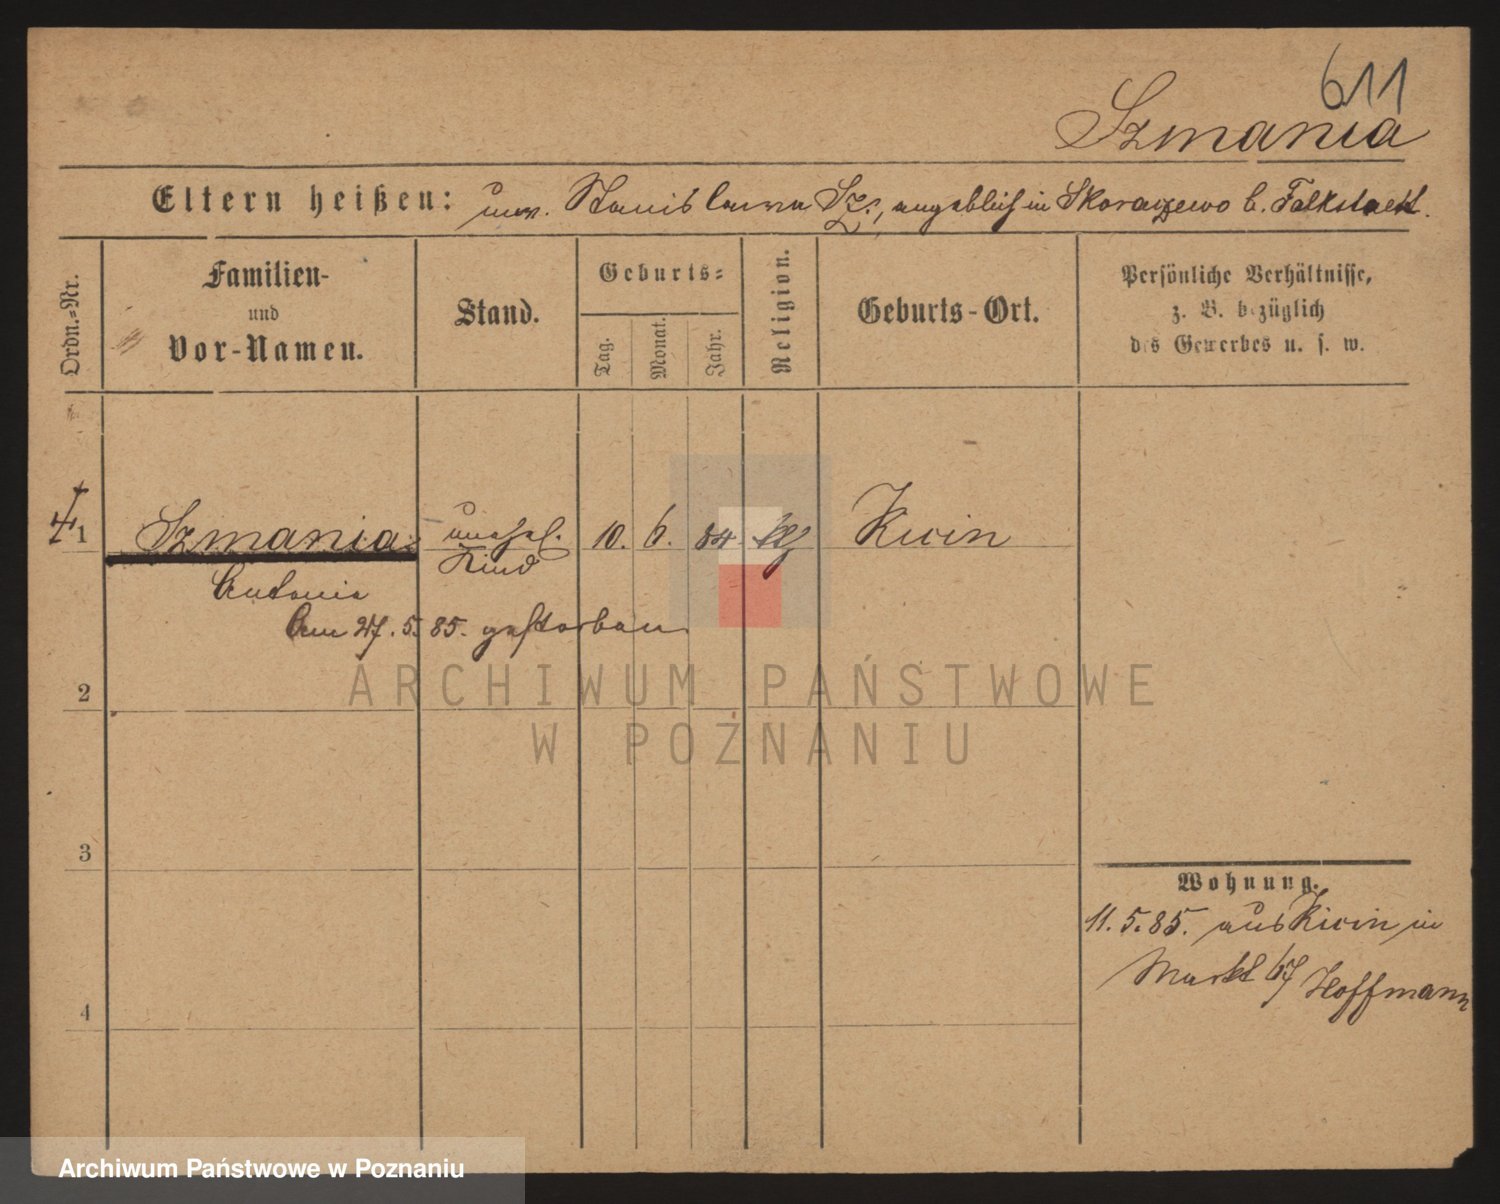 611
Szmania
Eltern heißen: unv. Stanislawa Sz., angeblich in Skoraczewo b. Falkstaett.
Ordn.-Nr.
Familien-
und
Vor-Namen.
Stand.
Geburts-
Tag.
Monat.
Jahr.
Religion.
Geburts-Ort.
Persönliche Verhältnisse,
z. B. bezüglich
des Gewerbes u. s. w.
1 Szmania unehel. 10. 6. 84 Kicin
Kind
Antonie
Am 27. 5. 85. gestorben
2
3
4
Wohnung.
11. 5. 85. aus Kicin in
Markt 67 Hoffmann
ARCHIWUM PAŃSTWOWE
W POZNANIU
Archiwum Państwowe w Poznaniu